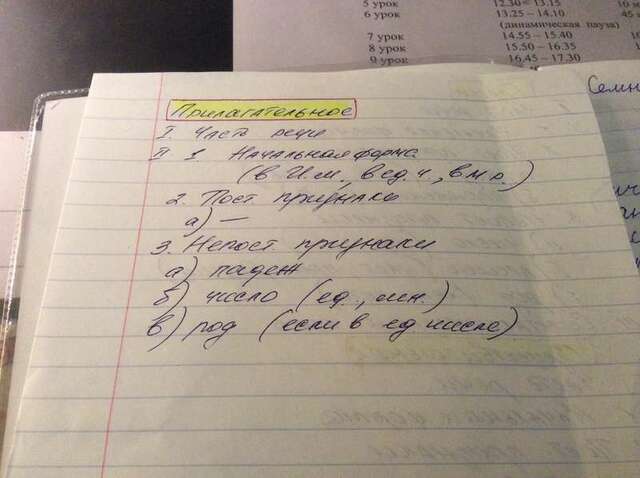 5 урок 12.30 – 13.15
6 урок 13.25 – 14.10 45
(динамическая пауза)
7 урок 14.55 – 15.40
8 урок 15.50 – 16.35
9 урок 16.45 – 17.30
Прилагательное
I Часть речи
II 1. Начальная форма
(в И.п., в ед.ч., в м.р.)
2. Пост признаки
а) —
3. Непост признаки
а) падеж
б) число (ед., мн.)
в) род (если в ед числе)